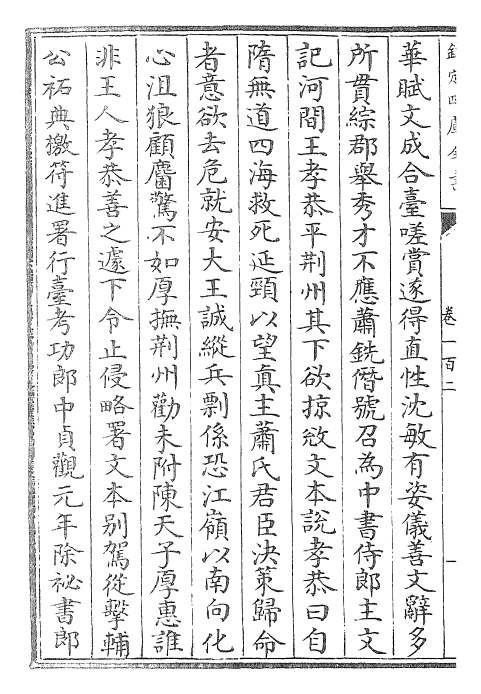 欽定四庫全書
卷一百二
一
華賦文成合臺嗟賞遂得直性沈敏有姿儀善文辭多
所貫綜郡舉秀才不應蕭銑僭號召為中書侍郎主文
記河間王孝恭平荆州其下欲掠𢼊文本說孝恭曰自
隋無道四海救死延頸以望真主蕭氏君臣決策歸命
者意欲去危就安大王誠縱兵剽係恐江嶺以南向化
心沮狼顧麕驚不如厚撫荆州勸未附陳天子厚惠誰
非王人孝恭善之遽下令止侵略署文本别駕從擊輔
公祏典檄符進署行臺考功郎中貞觀元年除祕書郎